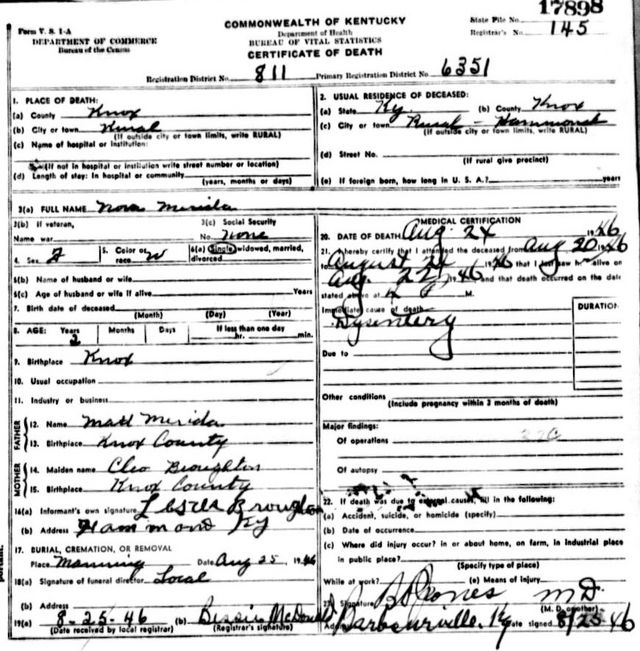 17898
Form V. S. 1-A
DEPARTMENT OF COMMERCE
Bureau of the Census
COMMONWEALTH OF KENTUCKY
Department of Health
BUREAU OF VITAL STATISTICS
CERTIFICATE OF DEATH
State File No.
Registrar's No. 145
Registration District No. 811 Primary Registration District No. 6351
1. PLACE OF DEATH:
(a) County Knox
(b) City or town Rural
(If outside city or town limits, write RURAL)
(c) Name of hospital or institution:
(If not in hospital or institution write street number or location)
(d) Length of stay: In hospital or community
(years, months or days)
2. USUAL RESIDENCE OF DECEASED:
(a) State Ky. (b) County Knox
(c) City or town Rural - Hammond
(If outside city or town limits, write RURAL)
(d) Street No.
(If rural give precinct)
(e) If foreign born, how long in U. S. A.? years
3(a) FULL NAME Nora Merida
3(b) If veteran,
Name war
3(c) Social Security
No. None
4. Sex F 5. Color or race W 6(a) Single, widowed, married, divorced
6(b) Name of husband or wife
6(c) Age of husband or wife if alive Years
7. Birth date of deceased
(Month) (Day) (Year)
8. AGE: Years 2 Months Days If less than one day
hr. min.
9. Birthplace Knox
10. Usual occupation
11. Industry or business
FATHER
12. Name Matt Merida
13. Birthplace Knox County
MOTHER
14. Maiden name Cleo Broughton
15. Birthplace Knox County
16(a) Informant's own signature Lester Broughton
(b) Address Hammond Ky
17. BURIAL, CREMATION, OR REMOVAL
Place Manning Date Aug 25, 1946
18(a) Signature of funeral director Local
19(a) 8-25-46 (b) Bessie McDonald
(Date received by local registrar) (Registrar's signature)
MEDICAL CERTIFICATION
20. DATE OF DEATH Aug. 24 1946
21. I hereby certify that I attended the deceased from Aug 20 1946
to August 24 1946 that I last saw h alive on
Aug. 22, 46 and that death occurred on the date
stated above at 4 M.
Immediate cause of death
Dysentery
DURATION
Due to
Other conditions
(Include pregnancy within 3 months of death)
Major findings:
Of operations
Of autopsy
22. If death was due to external causes, fill in the following:
(a) Accident, suicide, or homicide (specify)
(b) Date of occurrence
(c) Where did injury occur? in or about home, on farm, in industrial place
in public place?
(Specify type of place)
While at work? (e) Means of injury
23. Signature Jones M.D.
(M. D. or other)
Address Barbourville, Ky Date signed 8/25/46